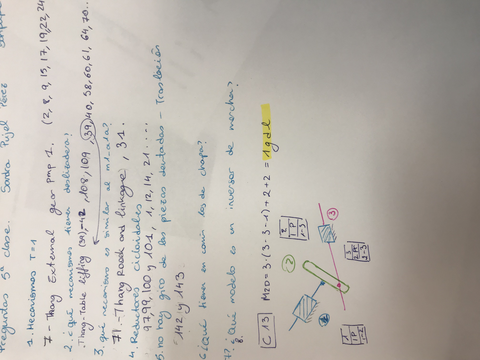 Preguntas 5ª clase. Sandra Pujol Pérez
1. Mecanismos T=1
7 - Thang External gear pmp 1. (2, 8, 9, 15, 17, 19, 22, 24
2. ¿qué mecanismos tienen deslizadera?
Thang-Table lifting (39), 108, 109, 39, 40, 58, 60, 61, 64, 70..
3. ¿qué mecanismo es similar al m1-a1a?
71. - Thang Roath and linkage, 31.
4. Reductores cicloidales
97, 99, 100 y 101, 1, 12, 14, 21 ....
5. no hay giro de las piezas dentadas - Traslación
142 y 143.
6 ¿Qué tienen en común los de chapa?
7. ¿Qué modelo es un inversor de marcha?
C 13
M2D = 3·(3-3-1)+2+2 = 1 gdl
2
1 P
1-3
3
2
3
2 PR
2-3
1
1 P
1-2